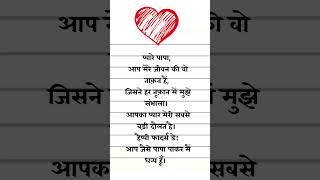 प्यारे पापा,
आप मेरे जीवन की वो
ताक़त हैं,
जिसने हर तूफ़ान में मुझे
संभाला।
आपका प्यार मेरी सबसे
बड़ी दौलत है।
हैप्पी फादर्स डे!
आप जैसे पापा पाकर मैं
धन्य हूँ।